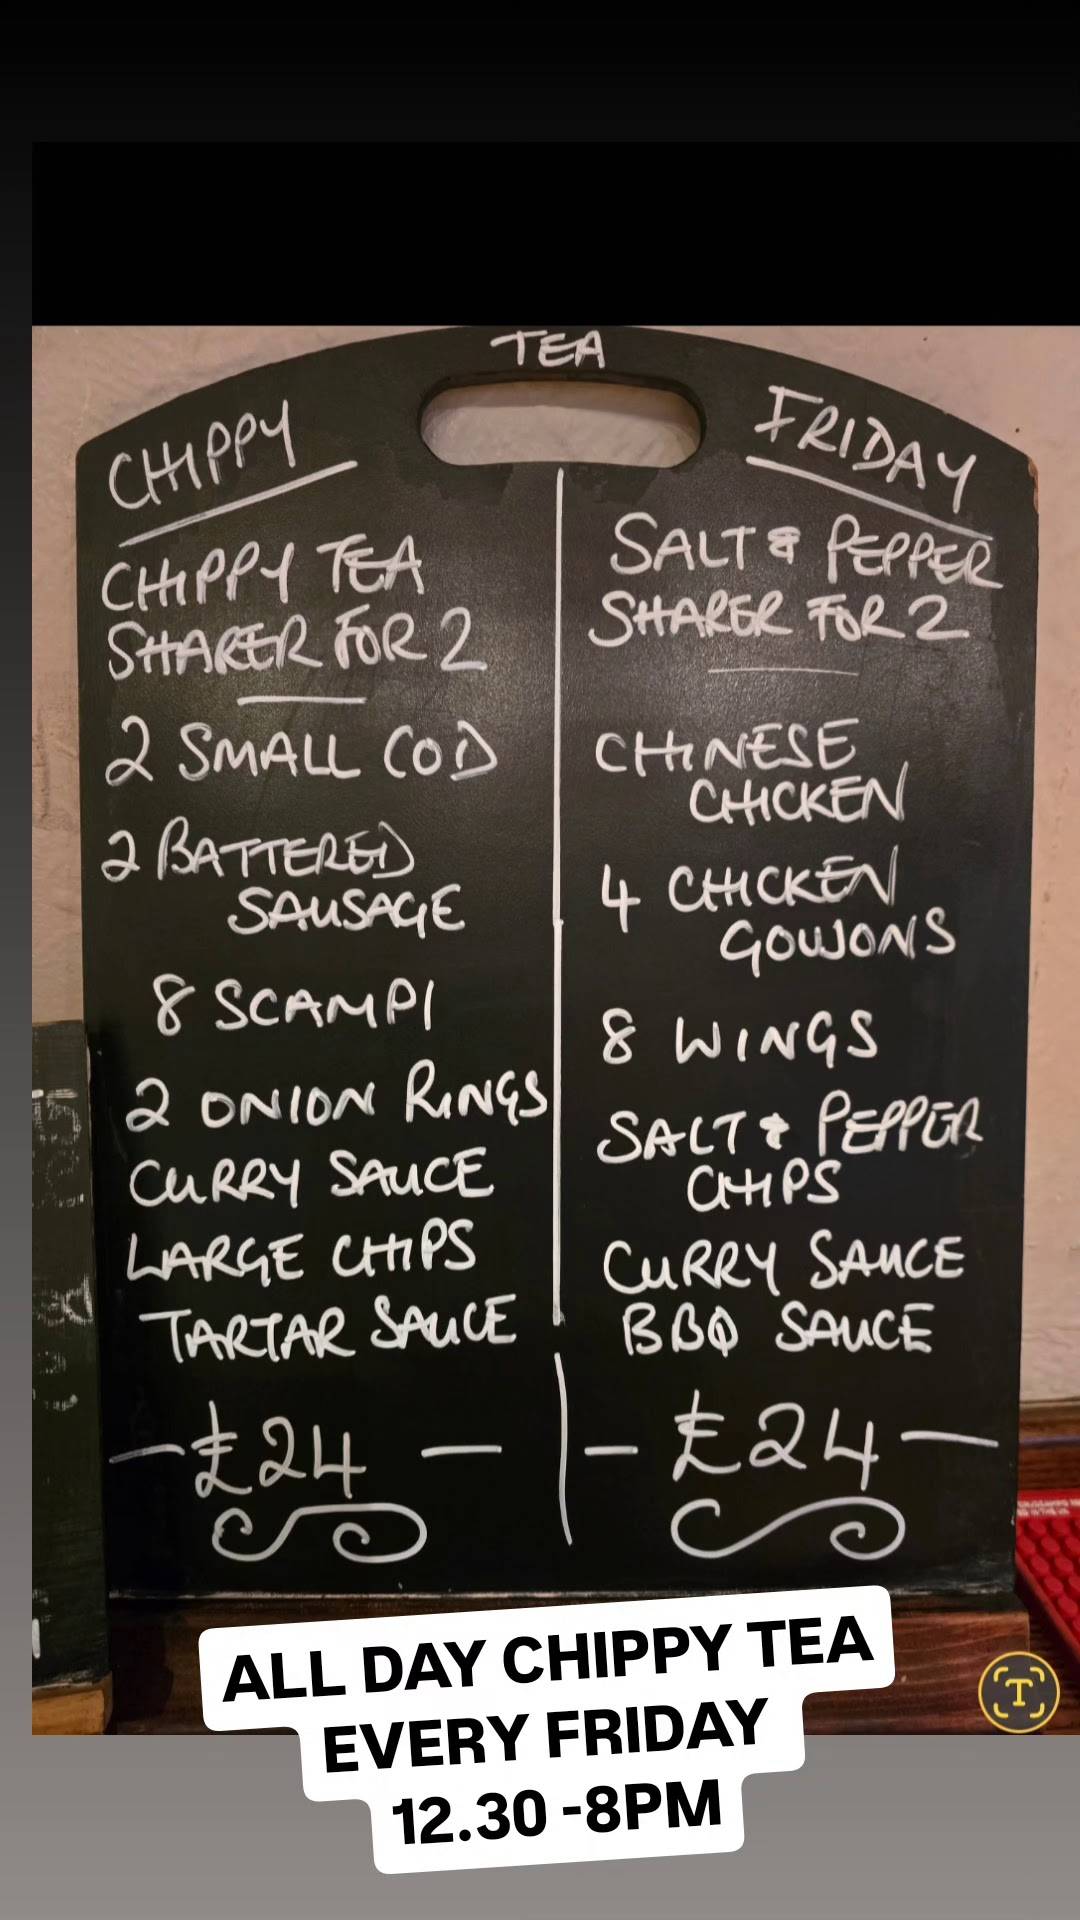 TEA
CHIPPY
FRIDAY
CHIPPY TEA
SHARER FOR 2
2 SMALL COD
2 BATTERED
SAUSAGE
8 SCAMPI
2 ONION RINGS
CURRY SAUCE
LARGE CHIPS
TARTAR SAUCE
£24
SALT & PEPPER
SHARER FOR 2
CHINESE
CHICKEN
4 CHICKEN
GOUJONS
8 WINGS
SALT & PEPPER
CHIPS
CURRY SAUCE
BBQ SAUCE
£24
ALL DAY CHIPPY TEA
EVERY FRIDAY
12.30 -8PM